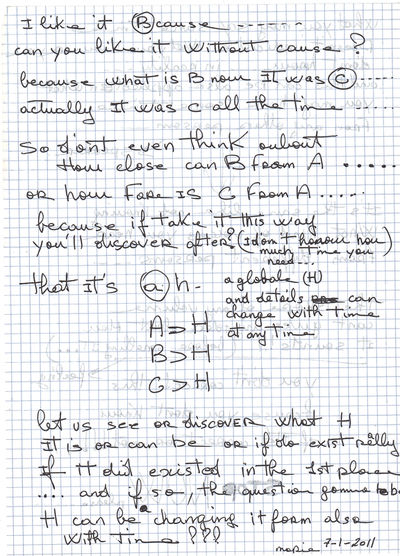 I like it B cause ------
can you like it without cause?
because what is B now It was C ----
actually It was C all the time ....
So don't even think oubout
How close can B from A .....
or how Fare IS C From A .....
because if take it this way
you'll discover after? (I don't know how
much time you
need...)
that it's a h-
a globale (H)
and details can
change with time
at any time
A > H
B > H
C > H
let us see or discover what H
It is or can be or if do exist really
If H did existed in the 1st place
.... and if so, the question gonna be
H can be changing it form also
with time ???
maria 7-1-2011